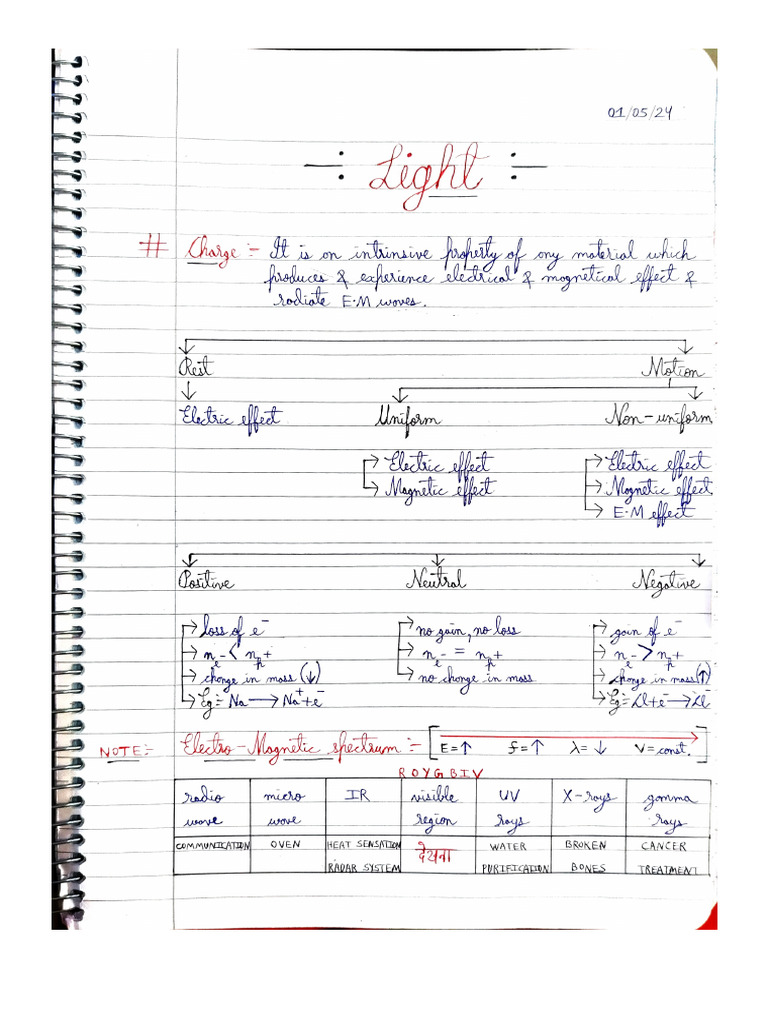 01/05/24
-: Light :-
# Charge :- It is an intrinsive property of any material which
produces & experience electrical & magnetical effect &
radiate E.M waves.
Rest Motion
Electric effect Uniform Non-uniform
Electric effect Electric effect
Magnetic effect Magnetic effect
E.M effect
Positive Neutral Negative
loss of e⁻ no gain, no loss gain of e⁻
nₑ- < nₚ+ nₑ- = nₚ+ nₑ- > nₚ+
change in mass (↓) no change in mass change in mass (↑)
Eg:- Na → Na⁺ + e⁻ Eg:- Cl + e⁻ → Cl⁻
NOTE:- Electro-Magnetic spectrum :- [E=↑ f=↑ λ=↓ V=const.]
ROYGBIV
radio micro IR visible UV X-rays gamma
wave wave region rays rays
COMMUNICATION OVEN HEAT SENSATION देखना WATER BROKEN CANCER
RADAR SYSTEM PURIFICATION BONES TREATMENT